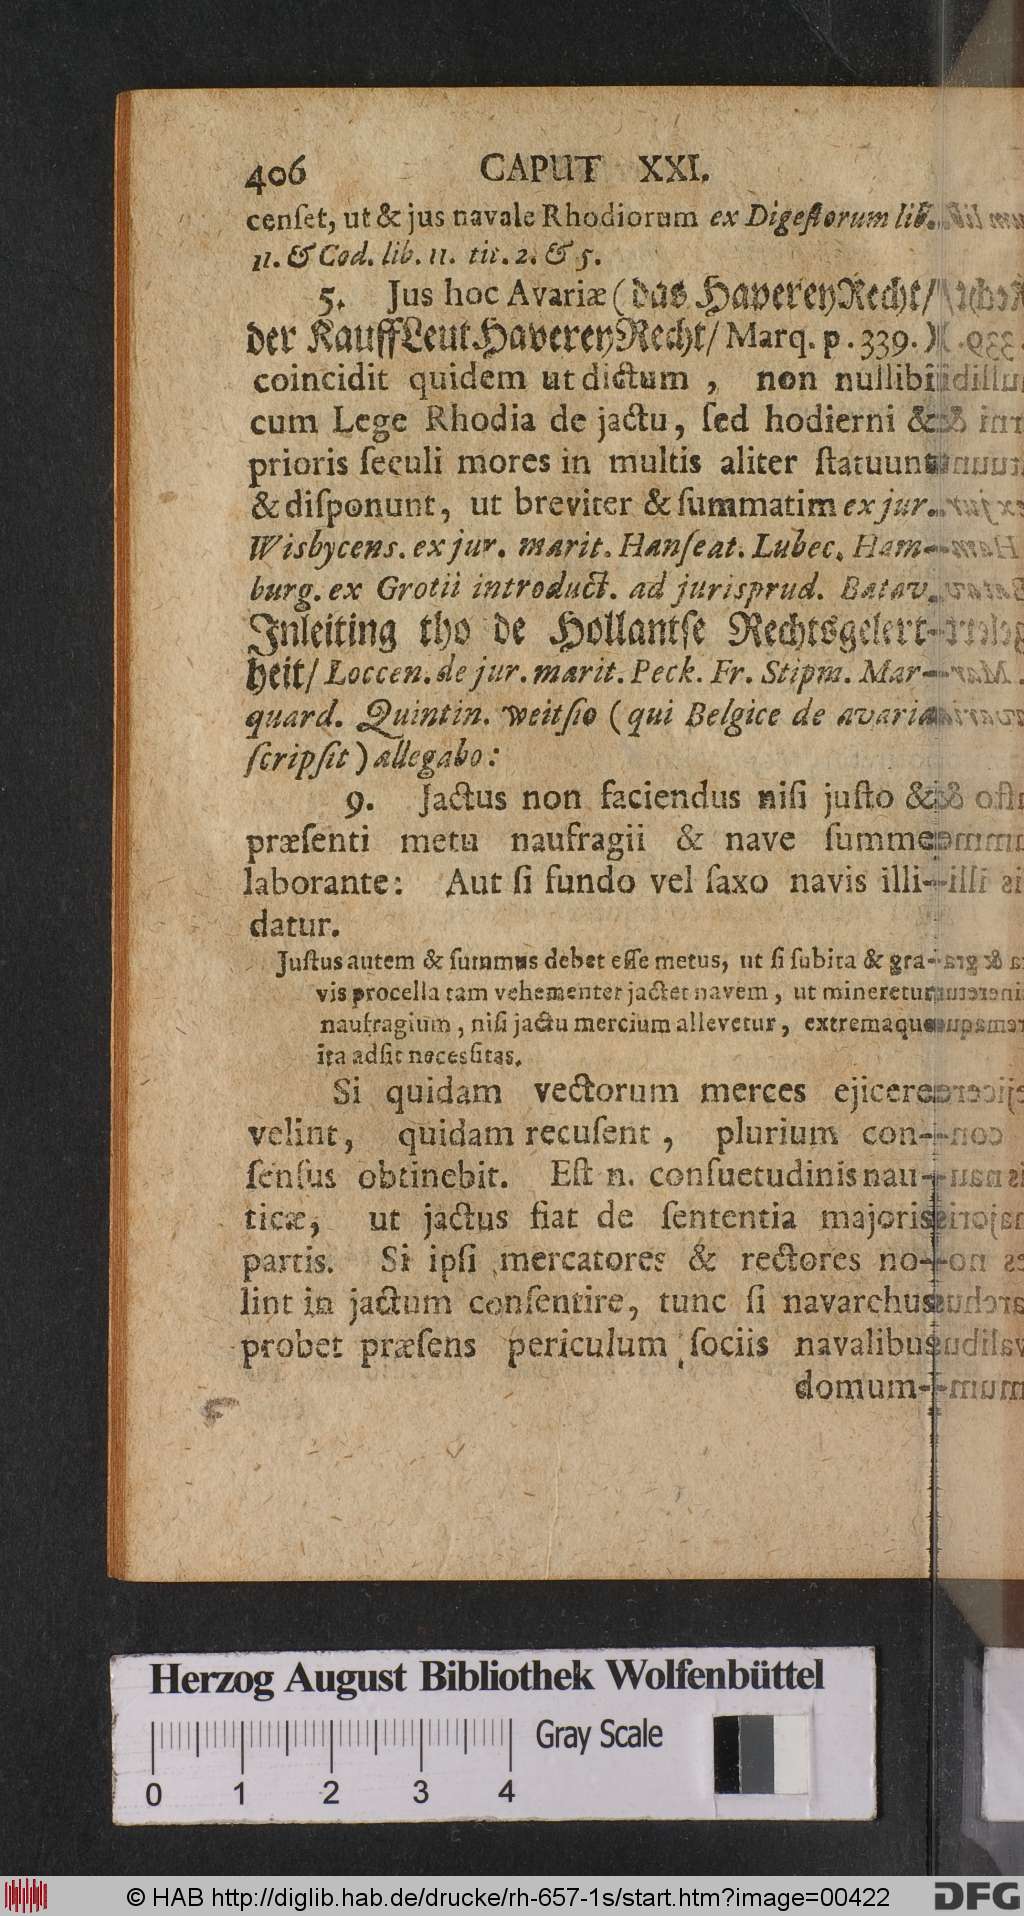 406 CAPUT XXI.
cenſet, ut & jus navale Rhodiorum ex Digeſtorum lib.
11. & Cod. lib. 11. tit. 2. & 5.
5. Jus hoc Avariæ (das HavereyRecht/
der KauffLeut HavereyRecht/ Marq. p. 339.)
coincidit quidem ut dictum, non nullibi
cum Lege Rhodia de jactu, ſed hodierni &
prioris ſeculi mores in multis aliter ſtatuunt
& diſponunt, ut breviter & ſummatim ex jur.
Wisbycens. ex jur. marit. Hanſeat. Lubec. Ham-
burg. ex Grotii introduct. ad jurisprud. Batav.
Inleiting tho de Hollantſe Rechtsgelert-
heit/ Loccen. de jur. marit. Peck. Fr. Stipm. Mar-
quard. Quintin. weitſio (qui Belgice de avaria
ſcripſit) allegabo:
9. Jactus non faciendus niſi juſto &
præſenti metu naufragii & nave ſumme
laborante: Aut ſi fundo vel ſaxo navis illi-
datur.
Juſtus autem & ſummus debet eſſe metus, ut ſi ſubita & gra-
vis procella tam vehementer jactet navem, ut mineretur
naufragium, niſi jactu mercium allevetur, extremaque
ita adſit neceſſitas.
Si quidam vectorum merces ejicere
velint, quidam recuſent, plurium con-
ſenſus obtinebit. Eſt n. conſuetudinis nau-
ticæ, ut jactus fiat de ſententia majoris
partis. Si ipſi mercatores & rectores no-
lint in jactum conſentire, tunc ſi navarchus
probet præſens periculum ſociis navalibus
domum-
Herzog August Bibliothek Wolfenbüttel
Gray Scale
0 1 2 3 4
© HAB http://diglib.hab.de/drucke/rh-657-1s/start.htm?image=00422 DFG